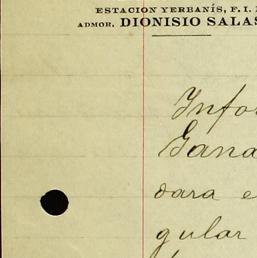 ESTACION YERBANÍS, F. I.
ADMOR. DIONISIO SALAS
Infor
Gana
dara e
gular